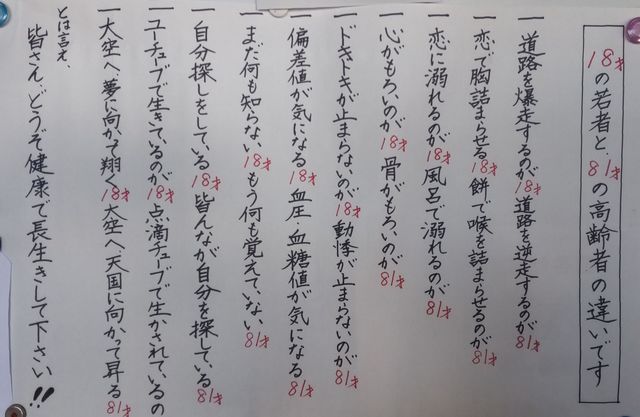 18才の若者と、81才の高齢者の違いです
一 道路を爆走するのが18才 道路を逆走するのが81才
一 恋で胸詰まらせる18才 餅で喉を詰まらせるのが81才
一 恋に溺れるのが18才 風呂で溺れるのが81才
一 心がもろいのが18才 骨がもろいのが81才
一 ドキドキが止まらないのが18才 動悸が止まらないのが81才
一 偏差値が気になる18才 血圧、血糖値が気になる81才
一 まだ何も知らない18才 もう何も覚えていない81才
一 自分探しをしている18才 皆んなが自分を探している81才
一 ユーチューブで生きているのが18才 点滴チューブで生かされているの
一 大空へ、夢に向かって翔く18才 大空へ天国に向かって昇る81才
とは言え、
皆さん、どうぞ健康で長生きして下さい!!